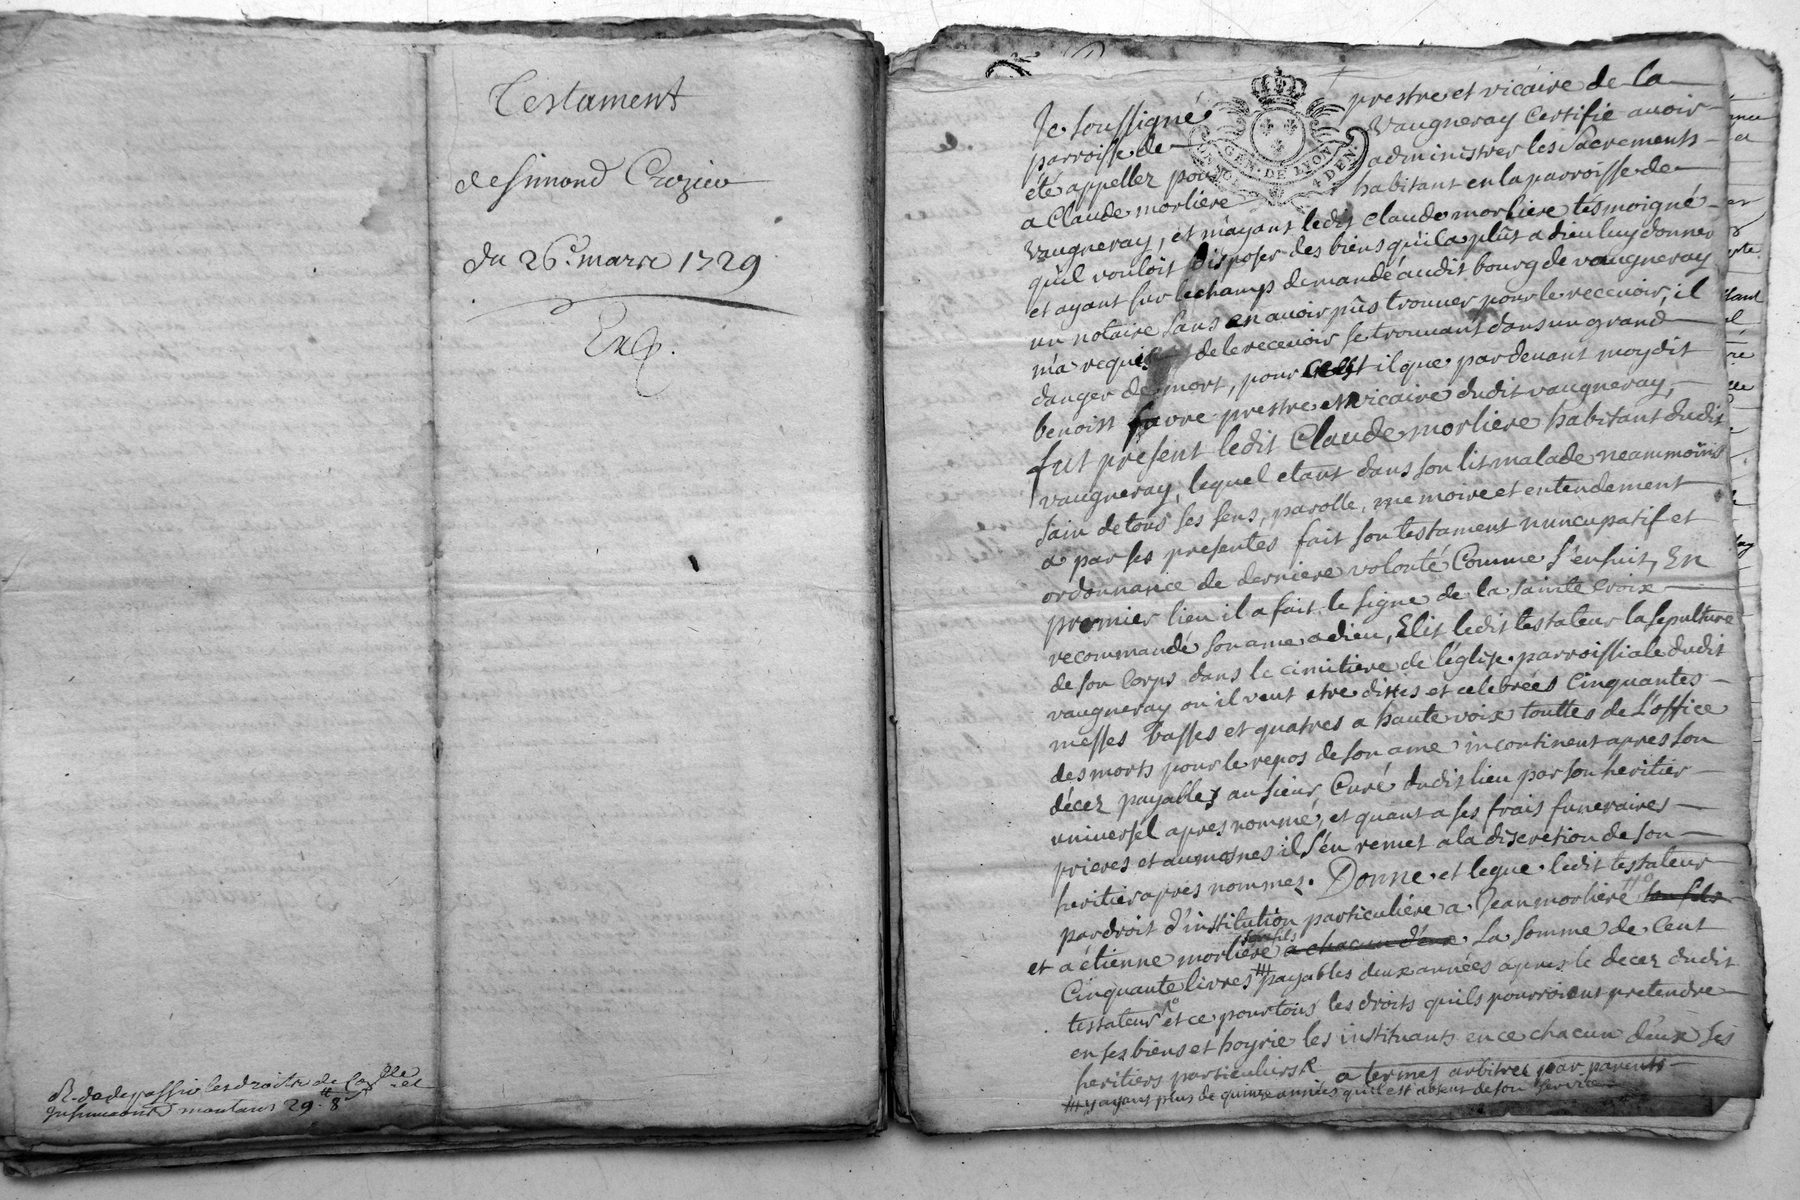 Testament
de simond Crozier
du 26e. mars 1729
Exp.
R. de de passrio les droits de Casse et
Insinuaons montans 29tt 8s
Je soussigné prestre et vicaire de la
parroisse de Vaugneray Certifie avoir
été appellez pour administrer les Sacrements
a Claude morliere habitant en la parroisse de
Vaugneray, et m'ayant ledit Claude morliere tesmoigné
qu'il vouloit disposer des biens qu'il a plût a dieu luy donner
et ayant sur le champs demandé audit bourg de vaugneray
un notaire sans en avoir pûs trouver pour le recevoir, il
m'a requis de le recevoir se trouvant dans un grand
danger de mort, pour c'est il que pardevant moydit
benoist favre prestre et vicaire dudit vaugneray,
fut present ledit Claude morliere habitant dudit
vaugneray, lequel etant dans son lit malade neammoins
sain de tous ses sens, parolle, memoire et entendement
a par ses presentes fait son testament nuncupatif et
ordonnance de derniere volonté Comme s'ensuit, En
premier lieu il a fait le signe de la sainte croix
recommandé son ame a dieu, Elit ledit testateur la sepulture
de son Corps dans le cimitiere de l'église parroissiale dudit
vaugneray ou il veut etre dittes et celebrées Cinquantes
messes basses et quatres a haute voix touttes de L'office
des morts pour le repos de son ame incontinent apres son
décez payables au sieur Curé dudit lieu par son heritier
universel apres nommé, et quant a ses frais funeraires
prieres et aumosnes il s'en remet a la discretion de son
heritier apres nommez. Donne et legue ledit testateur
par droit d'institution particuliére a Jean morliere son fils
son fils
et a étienne morliere a chacun d'eux La somme de Cent
Cinquante livres payables deux années apres le decez dudit
testateur et ce pour tous les droits qu'ils pourroient pretendre
en ses biens et hoyrie les instituants en ce chacun d'eux ses
heritiers particuliers a termes arbitres par parents
y ayant plus de quinze années qu'il est absent de son service